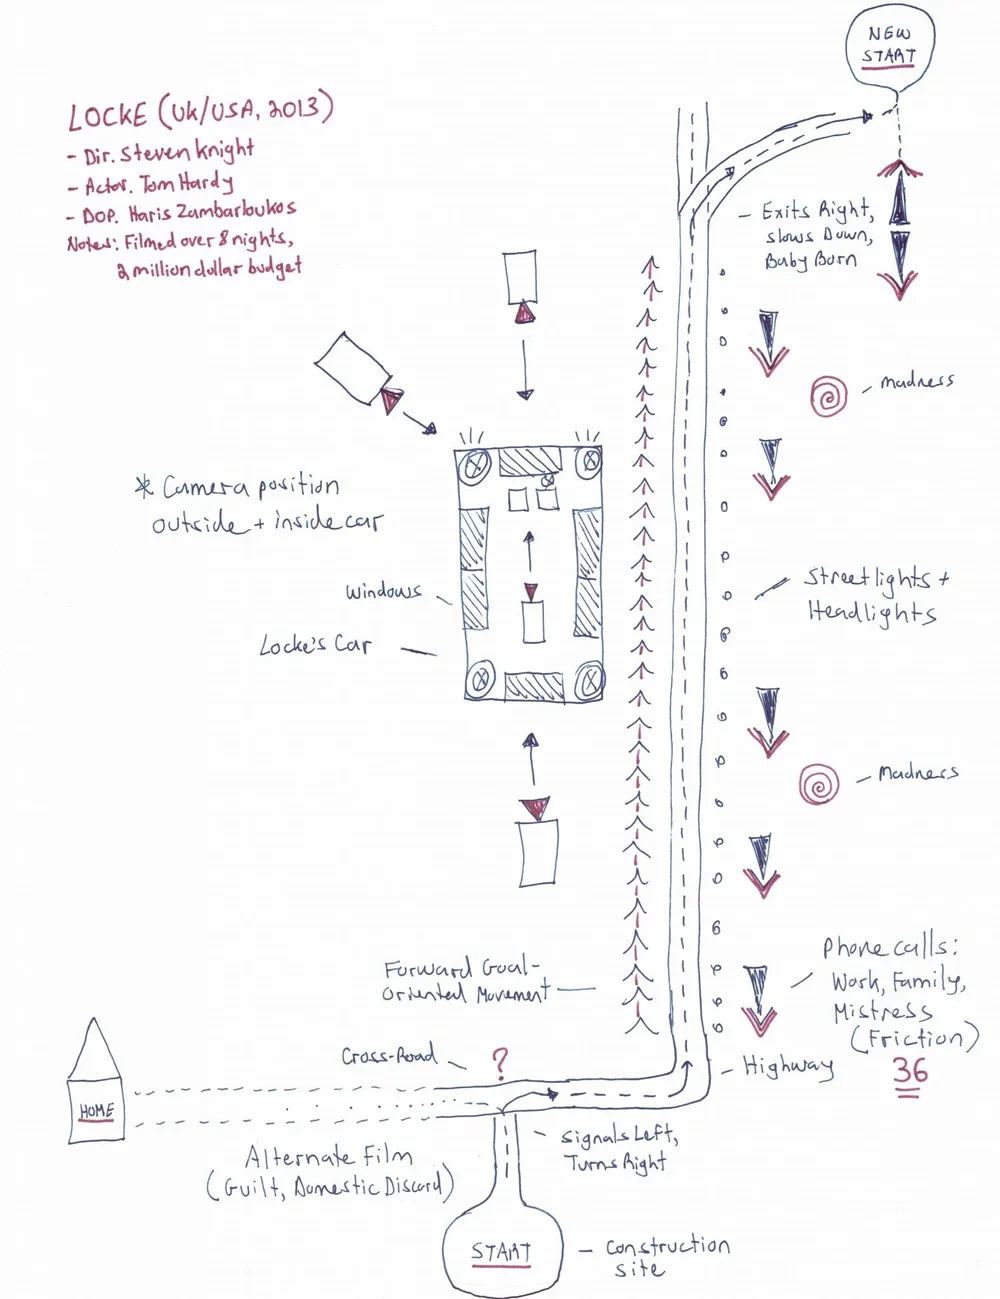 NEW
START
LOCKE (UK/USA, 2013)
- Dir. Steven Knight
- Actor. Tom Hardy
- DOP. Haris Zambarloukos
Notes: Filmed over 8 nights,
2 million dollar budget
- Exits Right,
Slows Down,
Baby Born
Madness
* Camera position
outside + inside car
Windows
Locke's Car
Streetlights +
Headlights
Madness
Phone calls:
Work, Family,
Mistress
(Friction)
36
Forward Goal-
Oriented Movement
Cross-Road
?
Highway
HOME
Signals Left,
Turns Right
Alternate Film
(Guilt, Domestic Discord)
START
- Construction
site